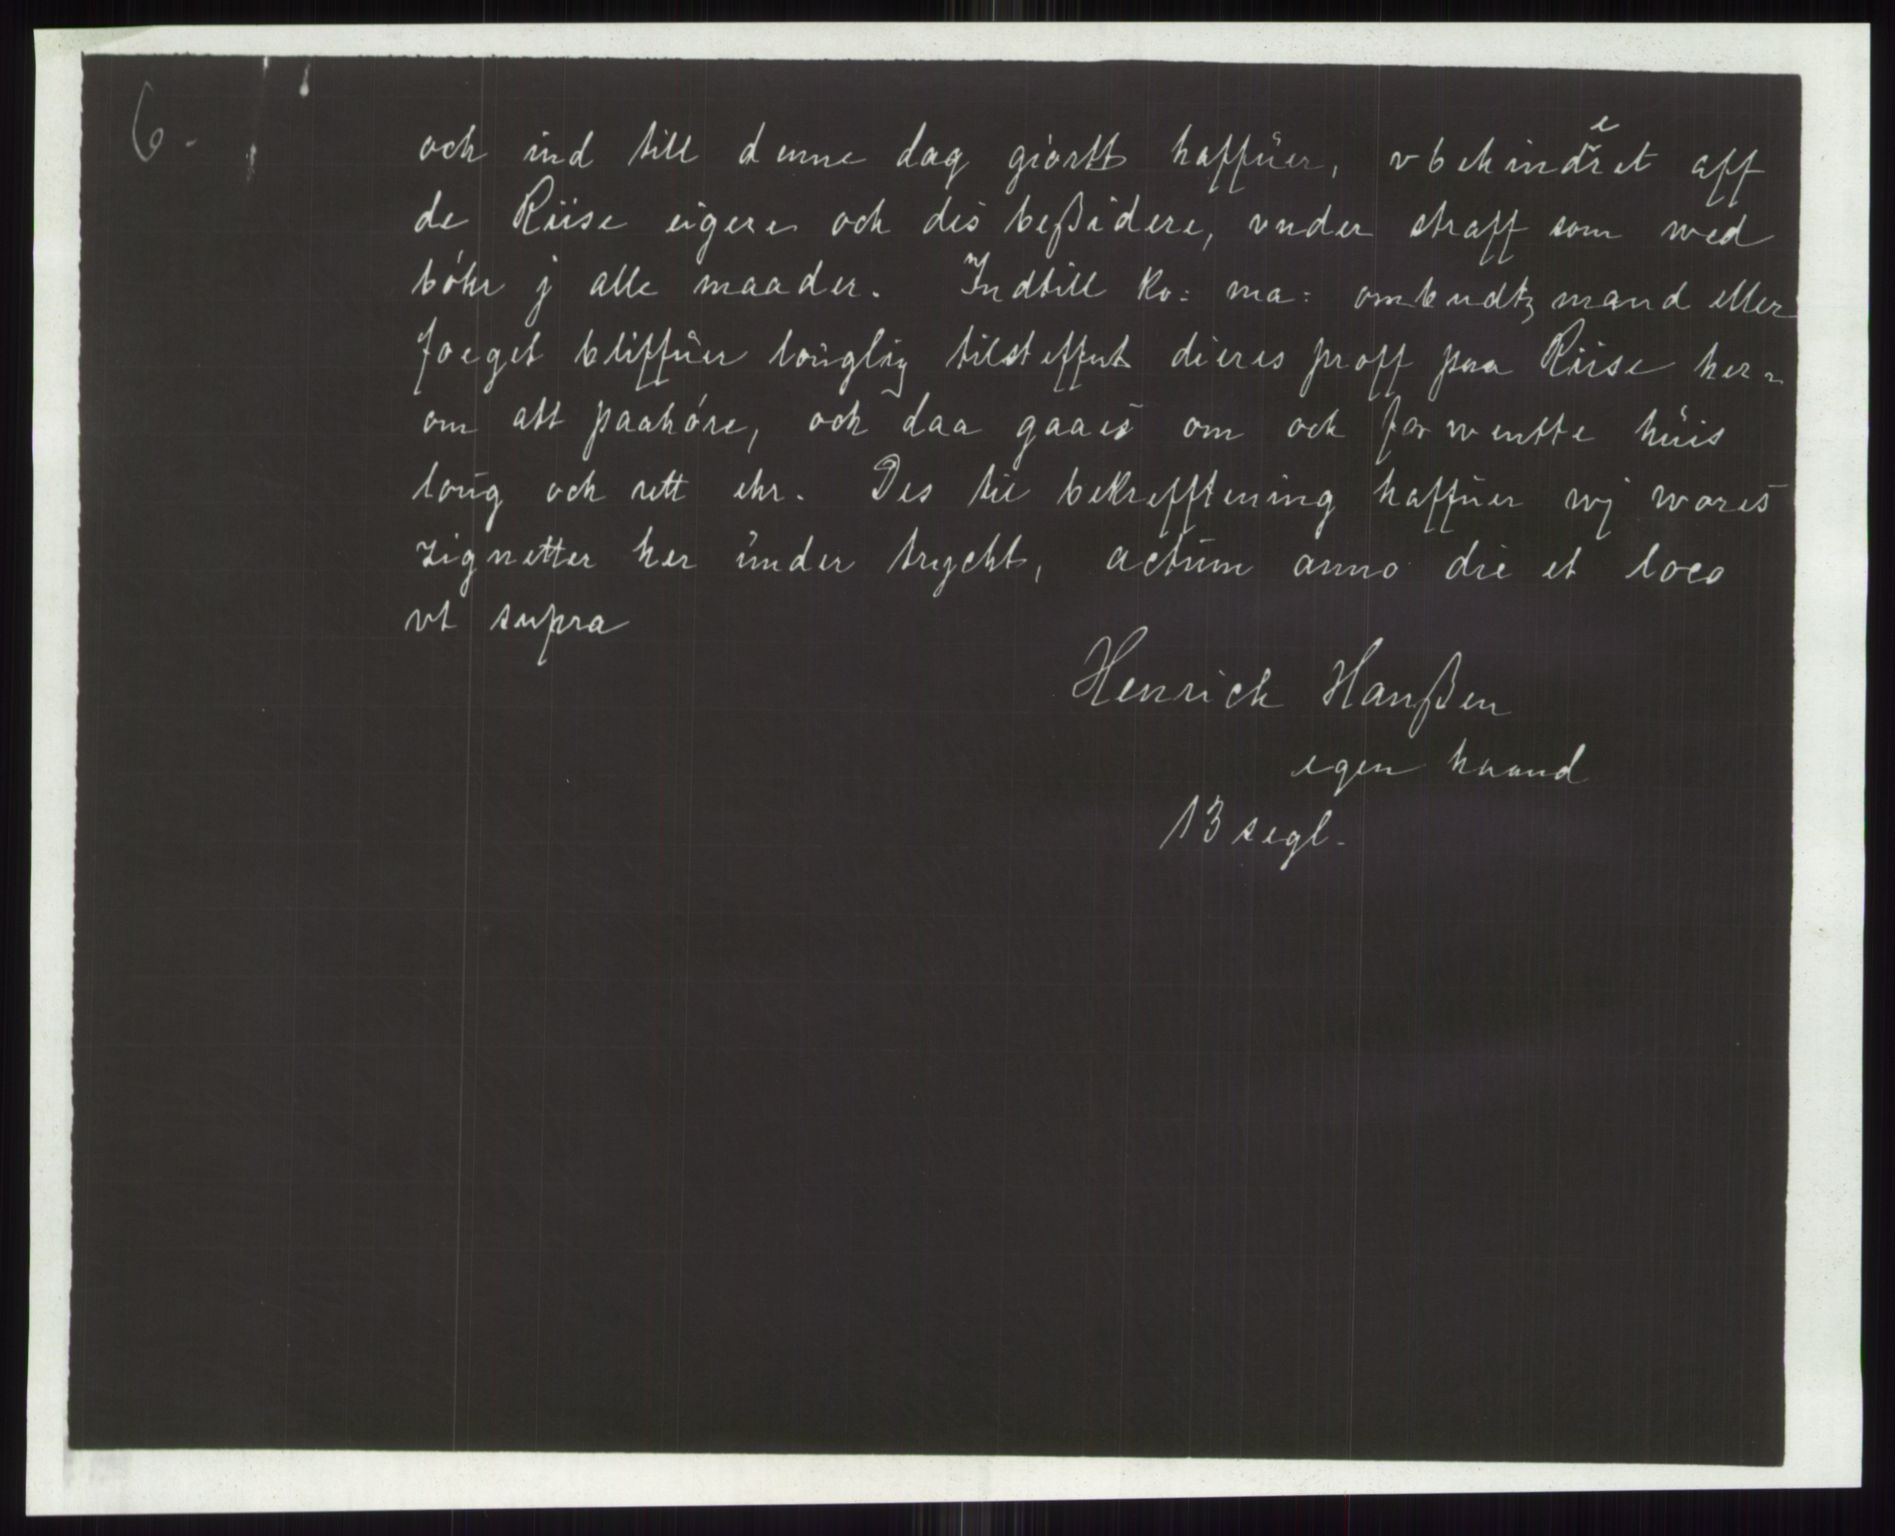 6.
och ind till denne dag giortt haffüer, vbehindret aff
de Riise eigere och dis beßidere, vnder straff som wed
bóhr j alle maader. Indtill ko: ma: ombudtz mand eller
foeget bliffüer loüglig tilsteffnt dieris proff paa Riise her=
om att paahóre, och daa gaais om och forwentte hüis
loüg och rett ehr. Des til bekrefftening haffüer wj wores
zignetter her ünder tryckt, actüm anno die et loco
vt supra
Henrich Hanßen
egen haand
13 segl.